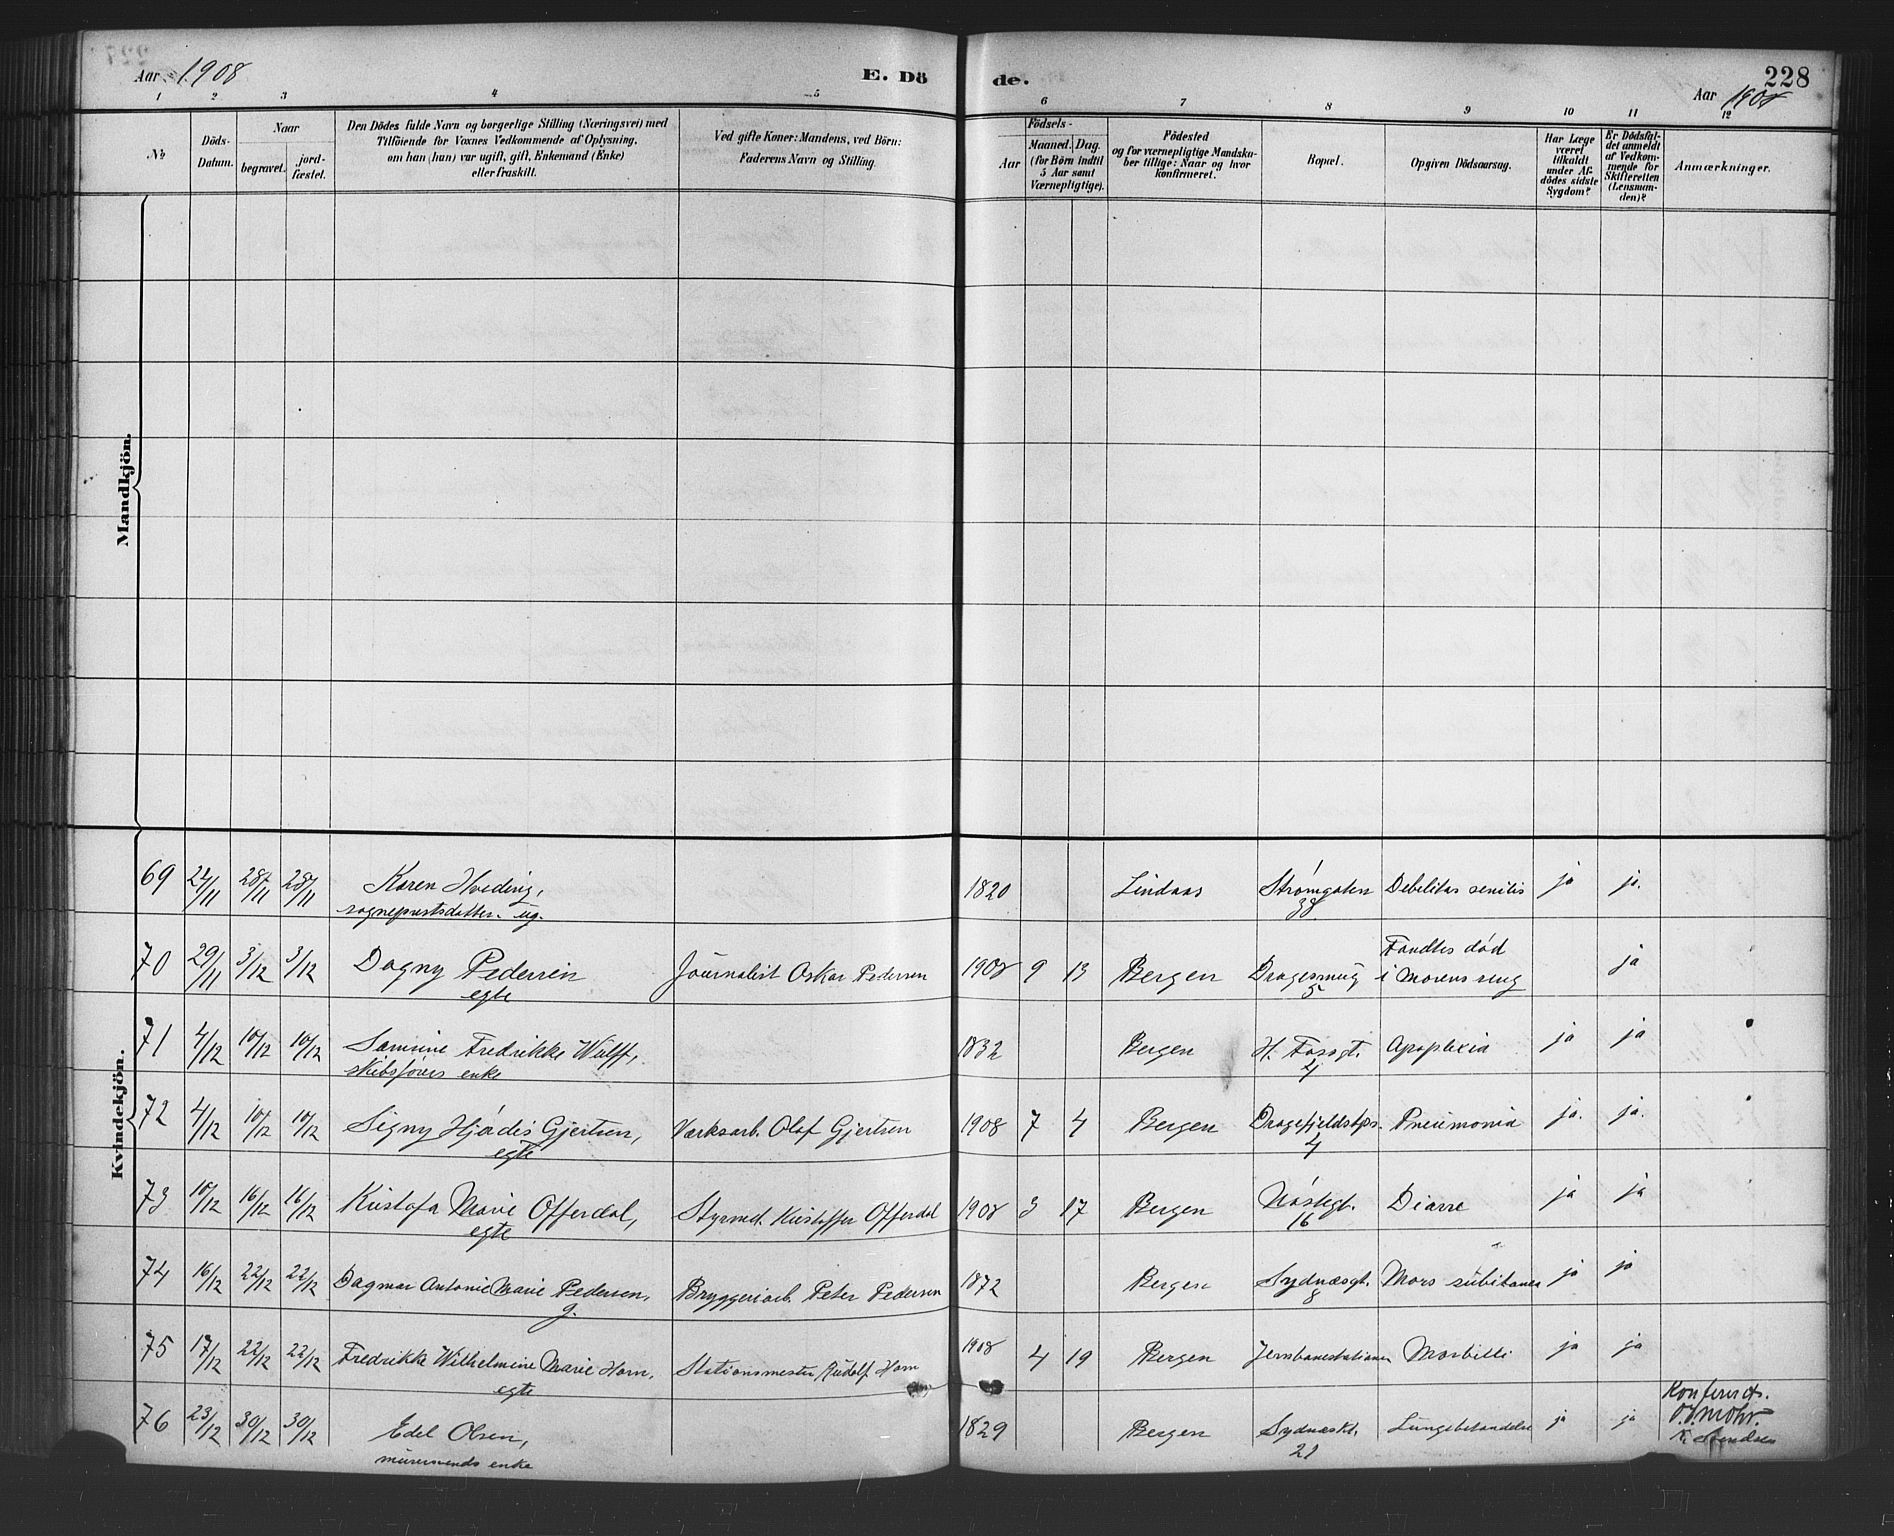 Aar 1908
E. Döde.
228
Aar 1908
1 2 3 4 5 6 7 8 9 10 11 12
No.
Döds-Datum.
Naar
begravet.
jord-fæstet.
Den Dödes fulde Navn og borgerlige Stilling (Næringsvei) med
Tilföiende for Voxnes Vedkommende af Oplysning,
om han (hun) var ugift, gift, Enkemand (Enke)
eller fraskilt.
Ved gifte Koner: Mandens, ved Börn:
Faderens Navn og Stilling.
Födsels-
Aar
Maaned. Dag.
(for Börn indtil
5 Aar samt
Værnepligtige).
Födested
og for værnepligtige Mandskaber tillige: Naar og hvor
konfirmeret.
Bopæl.
Opgiven Dödsaarsag.
Har Læge
været
tilkaldt
under Afdödes sidste
Sygdom?
Er Dödsfaldet anmeldt
af Vedkommende for
Skifteretten
(Lensmanden)?
Anmærkninger.
Mandkjön.
Kvindekjön.
69 28/11 28/11 Karen Hveding, 1820 Lindaas Strømgaten Debilitas senilis ja ja.
sogneprestsdatter. ug. 38
70 29/11 3/12 3/12 Dagny Pedersen Journalist Oskar Pedersen 1908 9 13 Bergen Fandtes død ja
egte 5 i morens seng
71 4/12 10/12 10/12 Samine Fredrikke Wulff, 1832 Bergen H. Fossgt. Apoplexia ja ja
skibsførers enke 4
72 4/12 10/12 10/12 Signy Hjødis Gjertsen, Værksarb. Olaf Gjertsen 1908 7 4 Bergen Pneumonia ja. ja.
egte 4
73 10/12 16/12 16/12 Kristofa Marie Offerdal, Styrmd. Kristoffer Offerdal 1908 3 17 Bergen Nøstegt. Diarre ja ja
egte 16
74 16/12 22/12 22/12 Dagmar Antonie Marie Pedersen, Bryggeriarb. Peter Pedersen 1872 Bergen Sydnæsgt. Mors subitanea ja ja
g. 8
75 17/12 22/12 22/12 Fredrikke Wilhelmine Marie Horn, Stationsmester Rudolf Horn 1908 4 19 Bergen Jernbanestationen Morbilli ja ja
egte
76 23/12 30/12 30/12 Edel Olsen, 1829 Bergen Lungebetændelse ja ja
murersvends enke 21
Konferert.